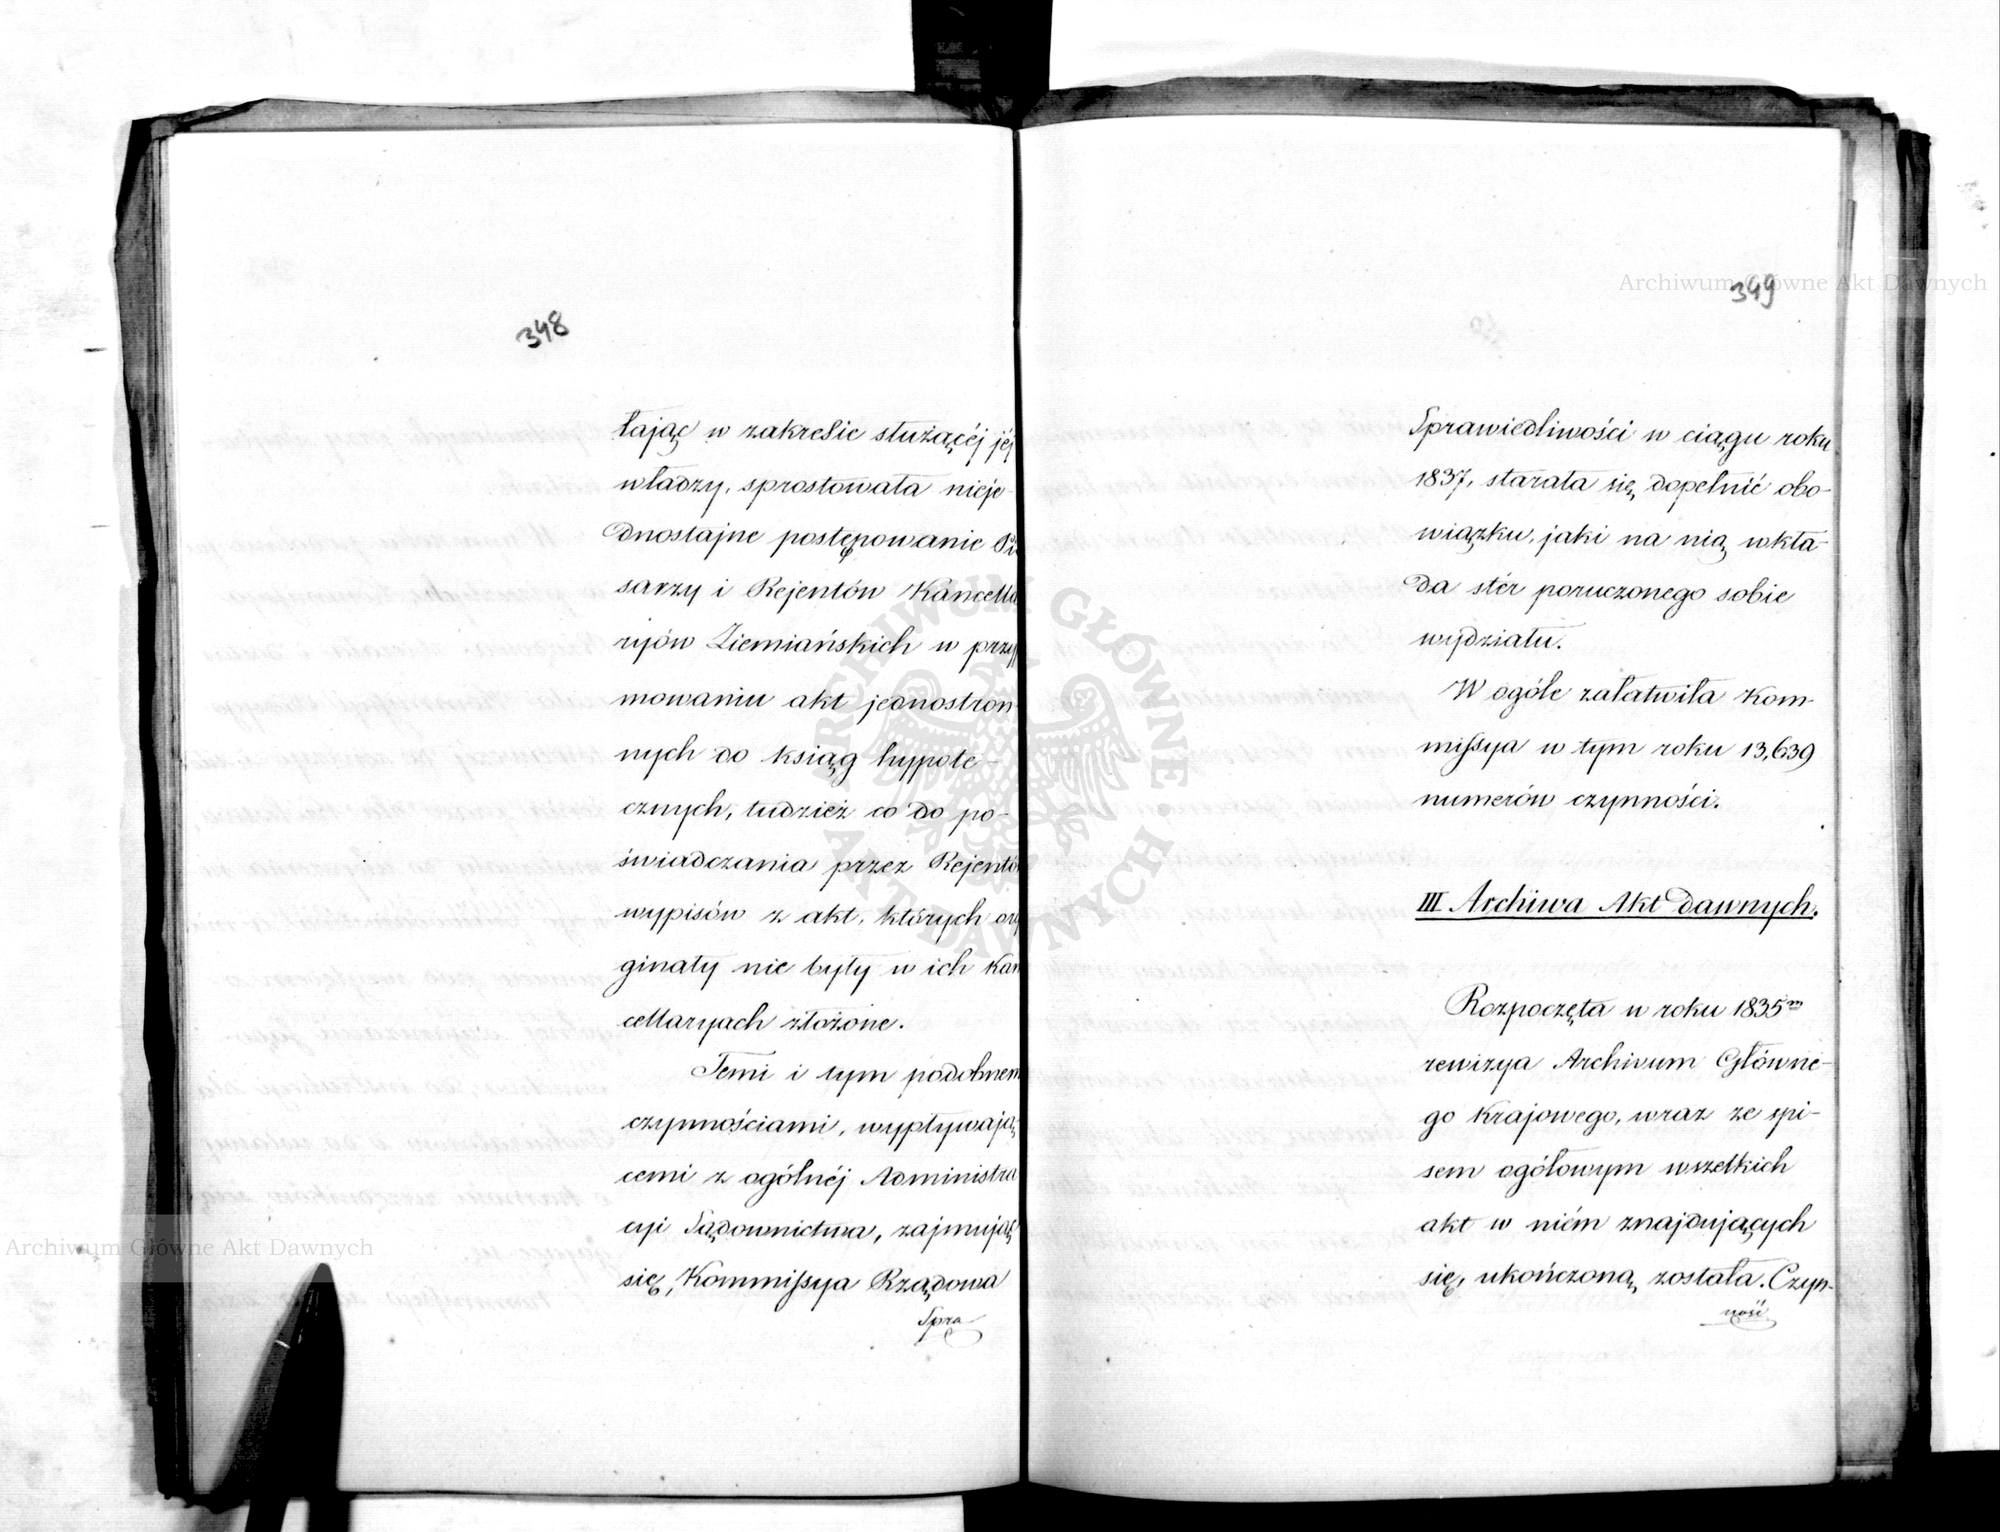 348
łając w zakresie służącéj jéj
władzy, sprostowała nieje-
dnostajne postępowanie Pi
sarzy i Rejentów Kancella
ryjów Ziemiańskich w przy
mowaniu akt jednostron
nych do ksiąg hypote-
cznych, tudzież co do po-
świadczania przez Rejentó
wypisów z akt, których ory
ginały nie były w ich Kan
cellaryach złożone.
Temi i tym podobnem
czynnościami, wypływają
cemi z ogólnéj Administra
cyi Sądownictwa, zajmując
się, Kommissya Rządowa
Spra
349
Sprawiedliwości w ciągu roku
1837, starała się dopełnić obo-
wiązku, jaki na nią wkła-
da stér poruczonego sobie
wydziału.
W ogóle załatwiła Kom-
missya w tym roku 13,639
numerów czynności.
III Archiwa Akt dawnych.
Rozpoczęta w roku 1835m
rewizya Archivum Główne-
go Krajowego, wraz ze spi-
sem ogółowym wszelkich
akt w niém znajdujących
się, ukończoną została. Czyn-
ność
Archiwum Główne Akt Dawnych
Archiwum Główne Akt Dawnych
ARCHIWUM GŁÓWNE AKT DAWNYCH